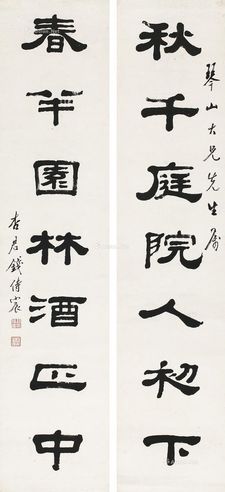 琴山大兄先生属
秋千庭院人初下
春半園林酒正中
杏君錢侍宸